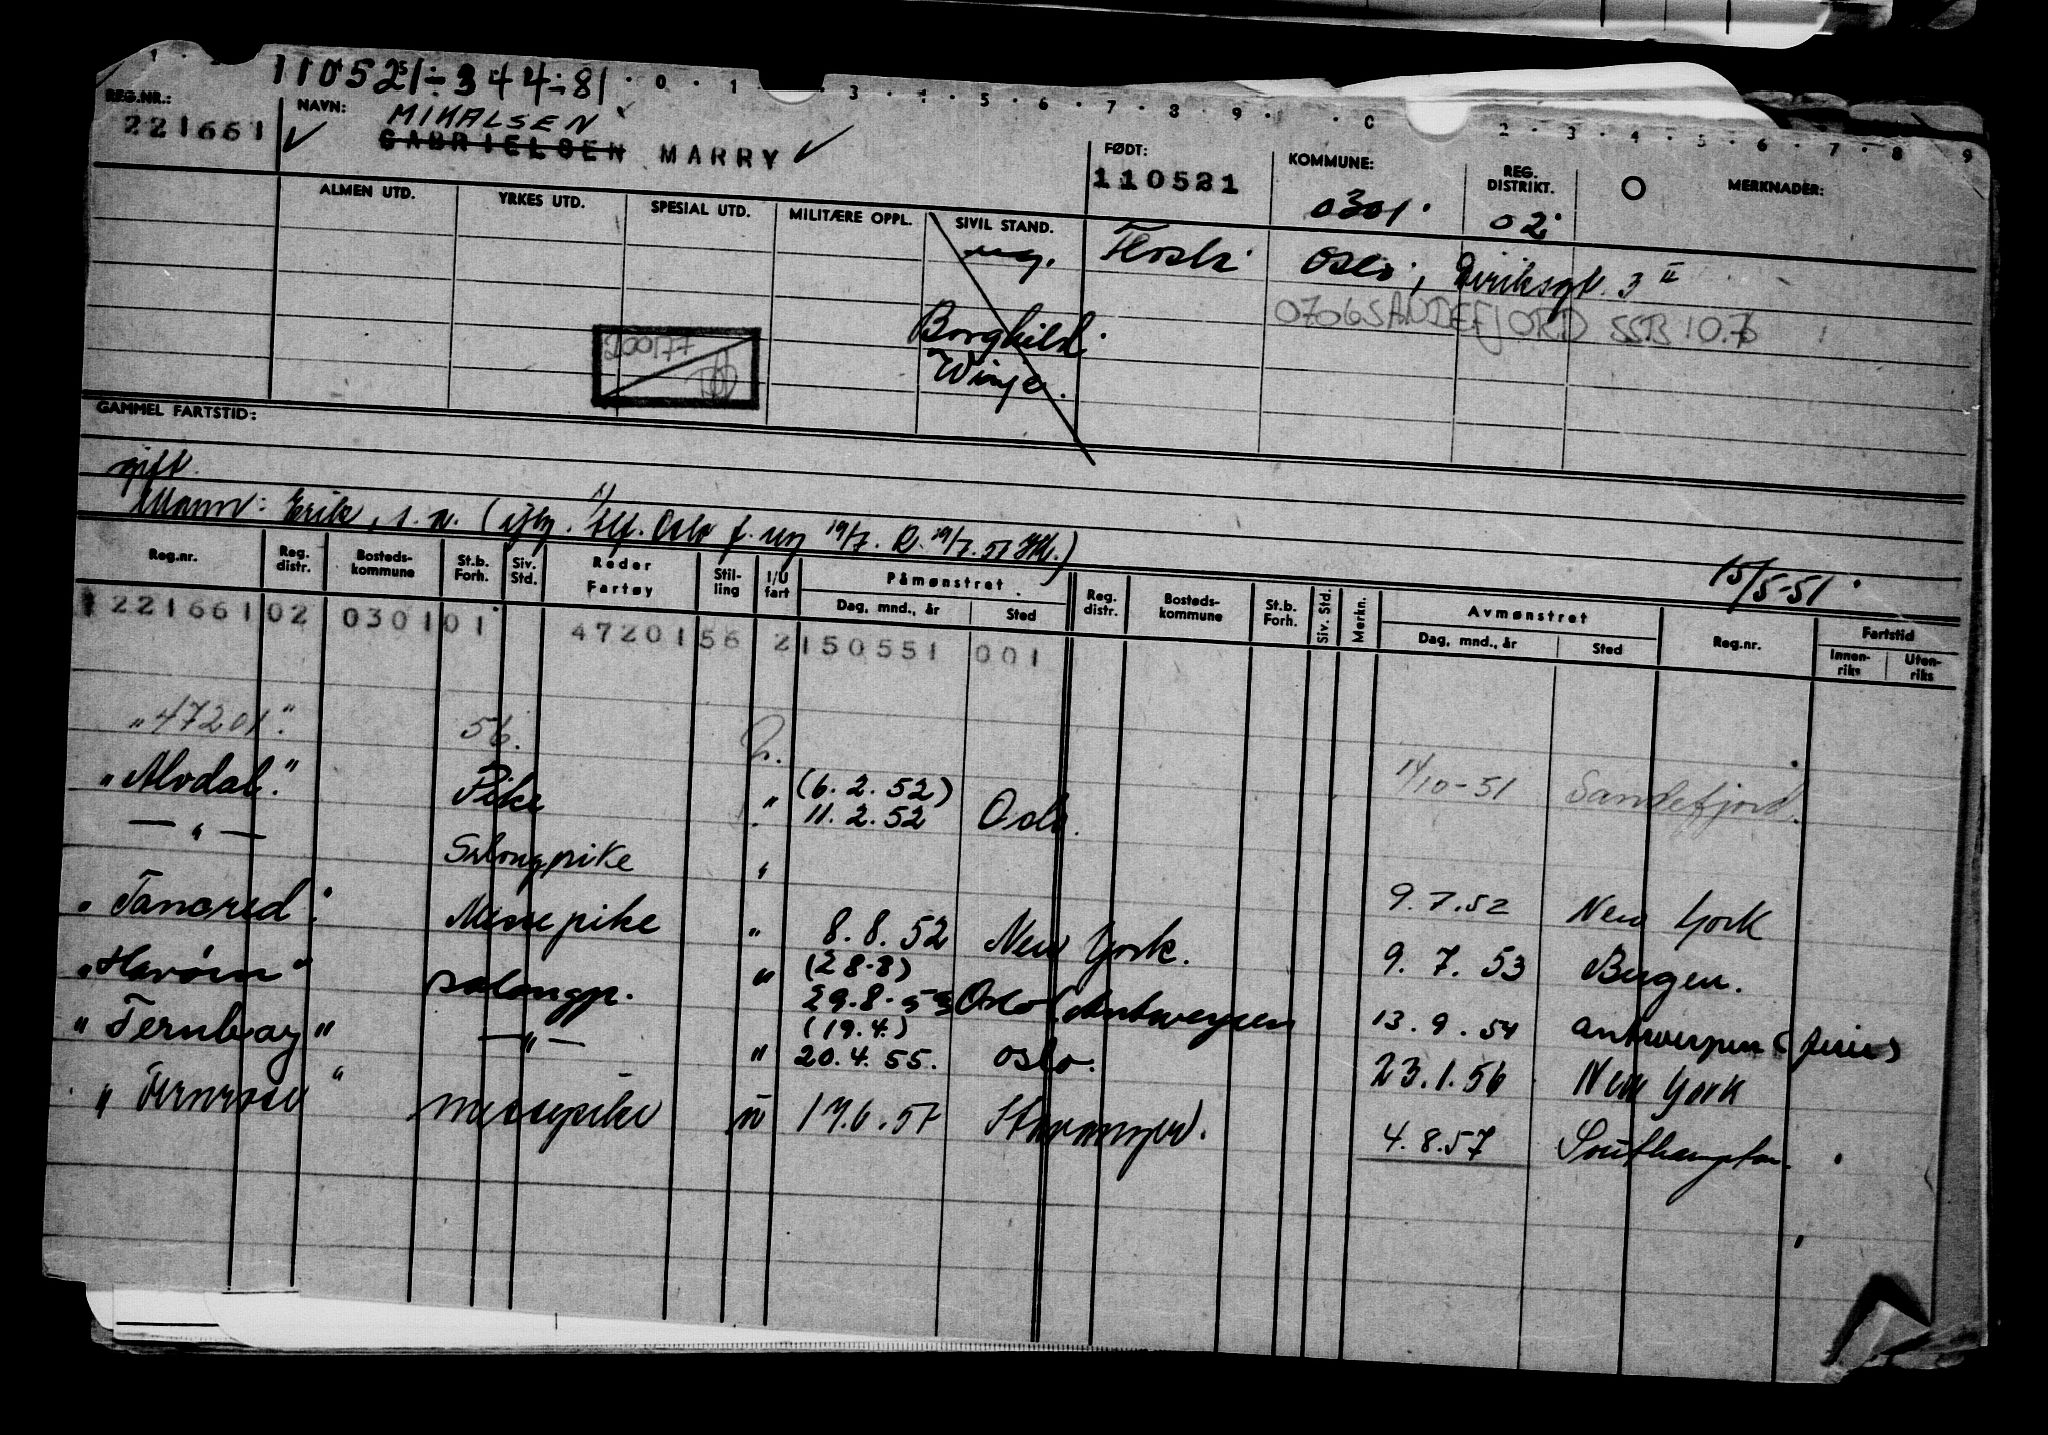 110521÷344÷81
0 1 3 4 5 6 7 8 9 C 2 3 4 5 6 7 8 9
REG.NR.: NAVN: MIKALSEN
221661 GABRIELSEN MARRY
FØDT: 110521
KOMMUNE: 0301
REG. DISTRIKT. 02
MERKNADER:
ALMEN UTD. YRKES UTD. SPESIAL UTD. MILITÆRE OPPL. SIVIL STAND.
ug. Oslo, Diriksgt. 3 II
0706 SANDEFJORD SSB 10.76
Borghild
Winge.
GAMMEL FARTSTID:
gift.
Mann: Erik, s.a.
15/5-51
Reg.nr. Reg. distr. Bosteds-kommune St.b. Forh. Siv. Std. Reder Fartøy Stil-ling I/U fart Påmønstret Dag, mnd., år Sted Reg. distr. Bosteds-kommune St.b. Forh. Siv. Std. Merkn. Avmønstret Dag, mnd., år Sted Reg.nr. Fartstid Innen-riks Uten-riks
221661 02 0301 01 47201 56 2 150551 001
"47201" 56. 2. 14/10-51 Sandefjord.
"Alvdal" Pike " (6.2.52) 11.2.52 Oslo.
— " — Salongpike " 9.7.52 New York
"Tancred" Messepike " 8.8.52 New York. 9.7.53 Bergen.
"Havørn" salongp. " (28.8) 29.8.53 Oslo (Antwerpen 13.9.54 Antwerpen (ferie)
"Fernbay" — " — " (19.4.) 20.4.55. Oslo. 23.1.56 New York
"Fernrose" messepike 17.6.57 Stavanger. 4.8.57 Southampton.